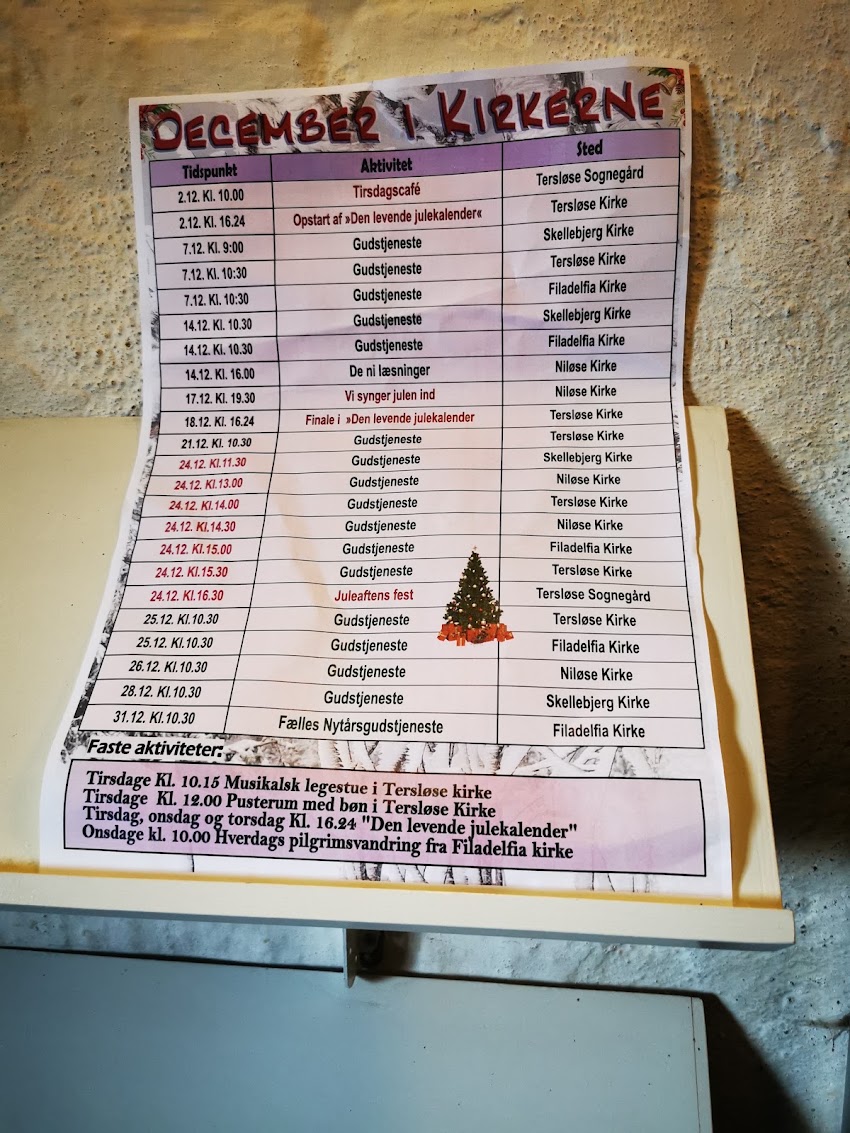 December i Kirkerne
Tidspunkt Aktivitet Sted
2.12. Kl. 10.00 Tirsdagscafé Tersløse Sognegård
2.12. Kl. 16.24 Opstart af »Den levende julekalender« Tersløse Kirke
7.12. Kl. 9:00 Gudstjeneste Skellebjerg Kirke
7.12. Kl. 10:30 Gudstjeneste Tersløse Kirke
7.12. Kl. 10:30 Gudstjeneste Filadelfia Kirke
14.12. Kl. 10.30 Gudstjeneste Skellebjerg Kirke
14.12. Kl. 10.30 Gudstjeneste Filadelfia Kirke
14.12. Kl. 16.00 De ni læsninger Niløse Kirke
17.12. Kl. 19.30 Vi synger julen ind Niløse Kirke
18.12. Kl. 16.24 Finale i »Den levende julekalender Tersløse Kirke
21.12. Kl. 10.30 Gudstjeneste Tersløse Kirke
24.12. Kl.11.30 Gudstjeneste Skellebjerg Kirke
24.12. Kl.13.00 Gudstjeneste Niløse Kirke
24.12. Kl.14.00 Gudstjeneste Tersløse Kirke
24.12. Kl.14.30 Gudstjeneste Niløse Kirke
24.12. Kl.15.00 Gudstjeneste Filadelfia Kirke
24.12. Kl.15.30 Gudstjeneste Tersløse Kirke
24.12. Kl.16.30 Juleaftens fest Tersløse Sognegård
25.12. Kl.10.30 Gudstjeneste Tersløse Kirke
25.12. Kl.10.30 Gudstjeneste Filadelfia Kirke
26.12. Kl.10.30 Gudstjeneste Niløse Kirke
28.12. Kl.10.30 Gudstjeneste Skellebjerg Kirke
31.12. Kl.10.30 Fælles Nytårsgudstjeneste Filadelfia Kirke
Faste aktiviteter:
Tirsdage Kl. 10.15 Musikalsk legestue i Tersløse kirke
Tirsdage Kl. 12.00 Pusterum med bøn i Tersløse Kirke
Tirsdag, onsdag og torsdag Kl. 16.24 "Den levende julekalender"
Onsdage kl. 10.00 Hverdags pilgrimsvandring fra Filadelfia kirke